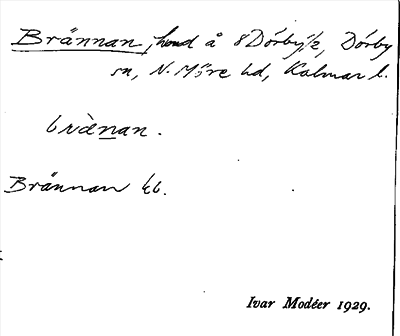 Brännan, hmd å 8 Dörby 1/2, Dörby
sn, N. Möre hd, Kalmar l.
brànan.
Brännan kb.
Ivar Modéer 1929.